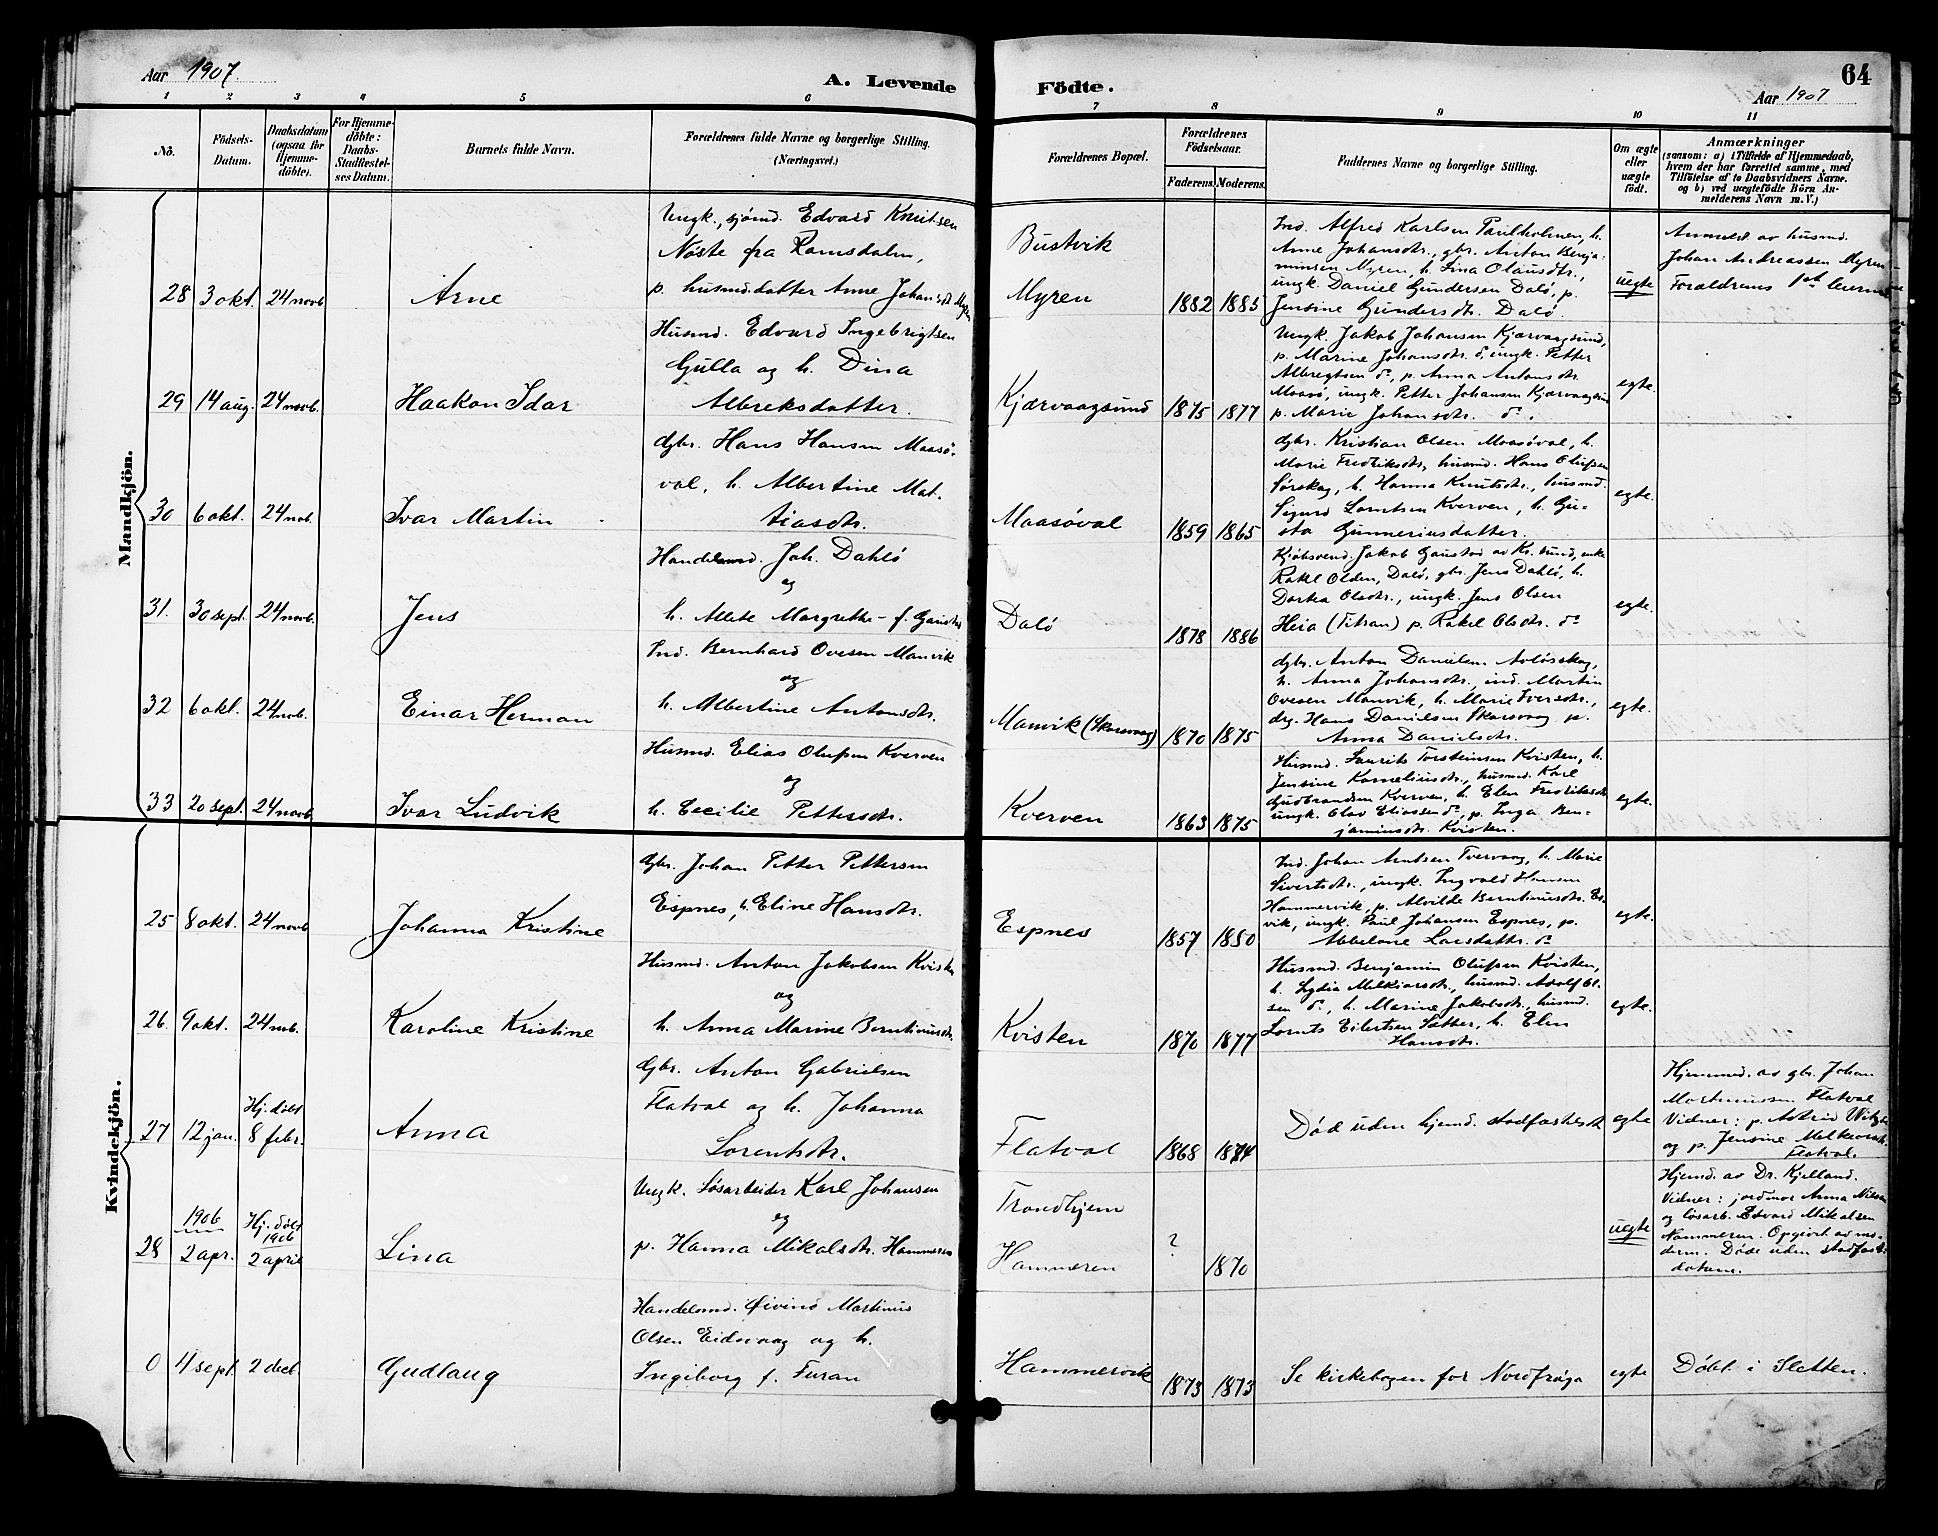 Aar 1907.
A. Levende
Födte.
64
Aar 1907
1 2 3 4 5 6 7 8 9 10 11
No.
Födsels-
Datum.
Daabsdatum
(ogsaa for
Hjemme-
döbte).
For Hjemme-
döbte:
Daabs-
Stadfæstel-
ses Datum.
Barnets fulde Navn.
Forældrenes fulde Navne og borgerlige Stilling.
(Næringsvei.)
Forældrenes Bopæl.
Forældrenes
Födselsaar.
Faderens. Moderens.
Faddernes Navne og borgerlige Stilling.
Om ægte
eller
uægte
födt.
Anmærkninger
(saasom: a) i Tilfælde af Hjemmedaab,
hvem der har forrettet samme, med
Tilföielse af to Daabsvidners Navne.
og b) ved uægtefödte Börn An-
melderens Navn m. V.)
Mandkjön.
28 3 okt. 24 novb. Arne
Ungk., sjömd. Edvard Knutsen
Nöste fra Romsdalen,
p. husmd.datter Anne Johansdtr Myren
Bustvik
Myren
1882 1885
Ind. Alfred Karlsen Paulholmen, h.
Anne Johansdtr., gbr. Anton Benja-
minsen Myren, h. Lina Olausdtr.,
ungk. Daniel Gundersen Dalö, p.
Jensine Gundersdtr. Dalö.
uegte
Anmeldt av husmd.
Johan Andreassen Myren
Foraldrens 1ste leiermaal
29 14 aug. 24 novb. Haakon Idar
Husmd. Edvard Ingebrigtsen
Gulla og h. Dina
Albreksdatter.
Kjærvaagsund
1875 1877
Ungk. Jakob Johansen Kjærvaagsund,
p. Marine Johansdtr. do, ungk. Petter
Albregtsen do, p. Anna Antonsdtr.
Maasö, ungk. Petter Johansen Kjærvaagsund
p. Marie Johansdtr. do.
egte.
30 6 okt. 24 nob. Ivar Martin
gbr. Hans Hansen Maasö-
val, h. Albertine Mat-
tiasdtr.
Maasöval
1859 1865
gbr. Kristian Olsen Maasöval, h.
Marie Fredriksdtr., husmd. Hans Olufsen
Sörskag, h. Hanna Knutsdtr., husmd.
Sigurd Lorntsen Kverven, h. Gu-
sta Gunneriusdatter.
egte.
31. 30 sept. 24 novb. Jens
Handelsmd. Joh. Dahlö
og
h. Mete Margrethe f.
Dalö
1878 1886
Kjöbsvend. Jakob Gaustad av Kr.sund, enke
Rakel Olden, Dalö, gbr. Jens Dahlö, h.
Dortea Olsdtr., ungk. Jens Olsen
Heia (Titran) p. Rakel Olsdtr. do
egte.
32 6 okt. 24 nob. Einar Herman
Ind. Bernhard Ovesen Manvik
og
h. Albertine Antonsdtr.
Manvik (Skarsvaag)
1870 1875
gbr. Anton Danielsen Avlösskag,
h. Anna Johansdtr., ind. Martin
Ovesen Manvik, h. Marie Iversdtr.,
drg. Hans Danielsen Skarsvaag p.
Anna Danielsdtr.
egte.
33 20 sept. 24 novb. Ivar Ludvik
Husmd. Elias Olufsen Kverven
og
h. Cecilie Pettersdtr.
Kverven
1863 1875
Husmd. Laurits Torsteinsen Kvisten, h.
Jensine Korneliusdtr., husmd. Karl
Gudbrandsen Kverven, h. Elen Fredriksdtr
ungk. Olav Eliassen do, p. Inga Ben-
jaminsdtr. Kvisten.
egte.
Kvindekjön.
25 8 okt. 24 novb Johanna Kristine
Gbr. Johan Petter Pettersen
Espnes, h. Eline Hansdtr.
Espnes
1857 1880
Ind. Johan Arntsen Tvervaag, h. Marie
Sivertsdtr., ungk. Ingvald Hansen
Hammervik, p. Alvilde Berntinusdtr. Es-
vik, ungk. Paul Johansen Espnes, p.
Abbelone Larsdattr. do
egte.
26. 9 okt. 24 nob. Karoline Kristine
Husmd. Anton Jakobsen Kvisten
og
h. Anna Marine Berntinusdtr.
Kvisten
1870 1877
Husmd. Benjamin Olufsen Kvisten,
h. Lydia Melkiorsdtr., husmd. Adolf Ol-
sen do, h. Marine Jakobsdtr., husmd.
Lornts Eilertsen Sætter, h. Elen
Hansdtr.
egte.
27 12 jan. Hj. döbt
8 febr. Anna
Gbr. Anton Gabrielsen
Flatval og h. Johanna
Lorentsdtr.
Flatval
1868 1874
Död uden hjemd. stadfæstelse
egte
Hjemmed. av gbr. Johan
Martinussen Flatval
Vidner: p. Astrid
og p. Jensine
Flatval.
28 1906
2 apr. Hj. döbt
1906
2 april Lina
Ungk. Løsarbeider Karl Johansen
og
p. Hanna Mikalsdtr. Hammeren
Trondhjem
Hammeren
? 1870
uegte
Hjemd. av Dr. Kjelland.
Vidner: jordmor Anna Nilsen
og løsarb. Edvard Mikalsen
Hammeren. Opgivet av mo-
deren. Döde uden stadfæst.
datum.
0 4 sept. 2 dec. Gudlaug
Handelsmd. Øivind Martinus
Olsen Eidsvaag og h.
Ingeborg f. Furan
Hammervik
1873 1873
Se kirkebogen for Nordfröya
egte
Döbt i Sletten.